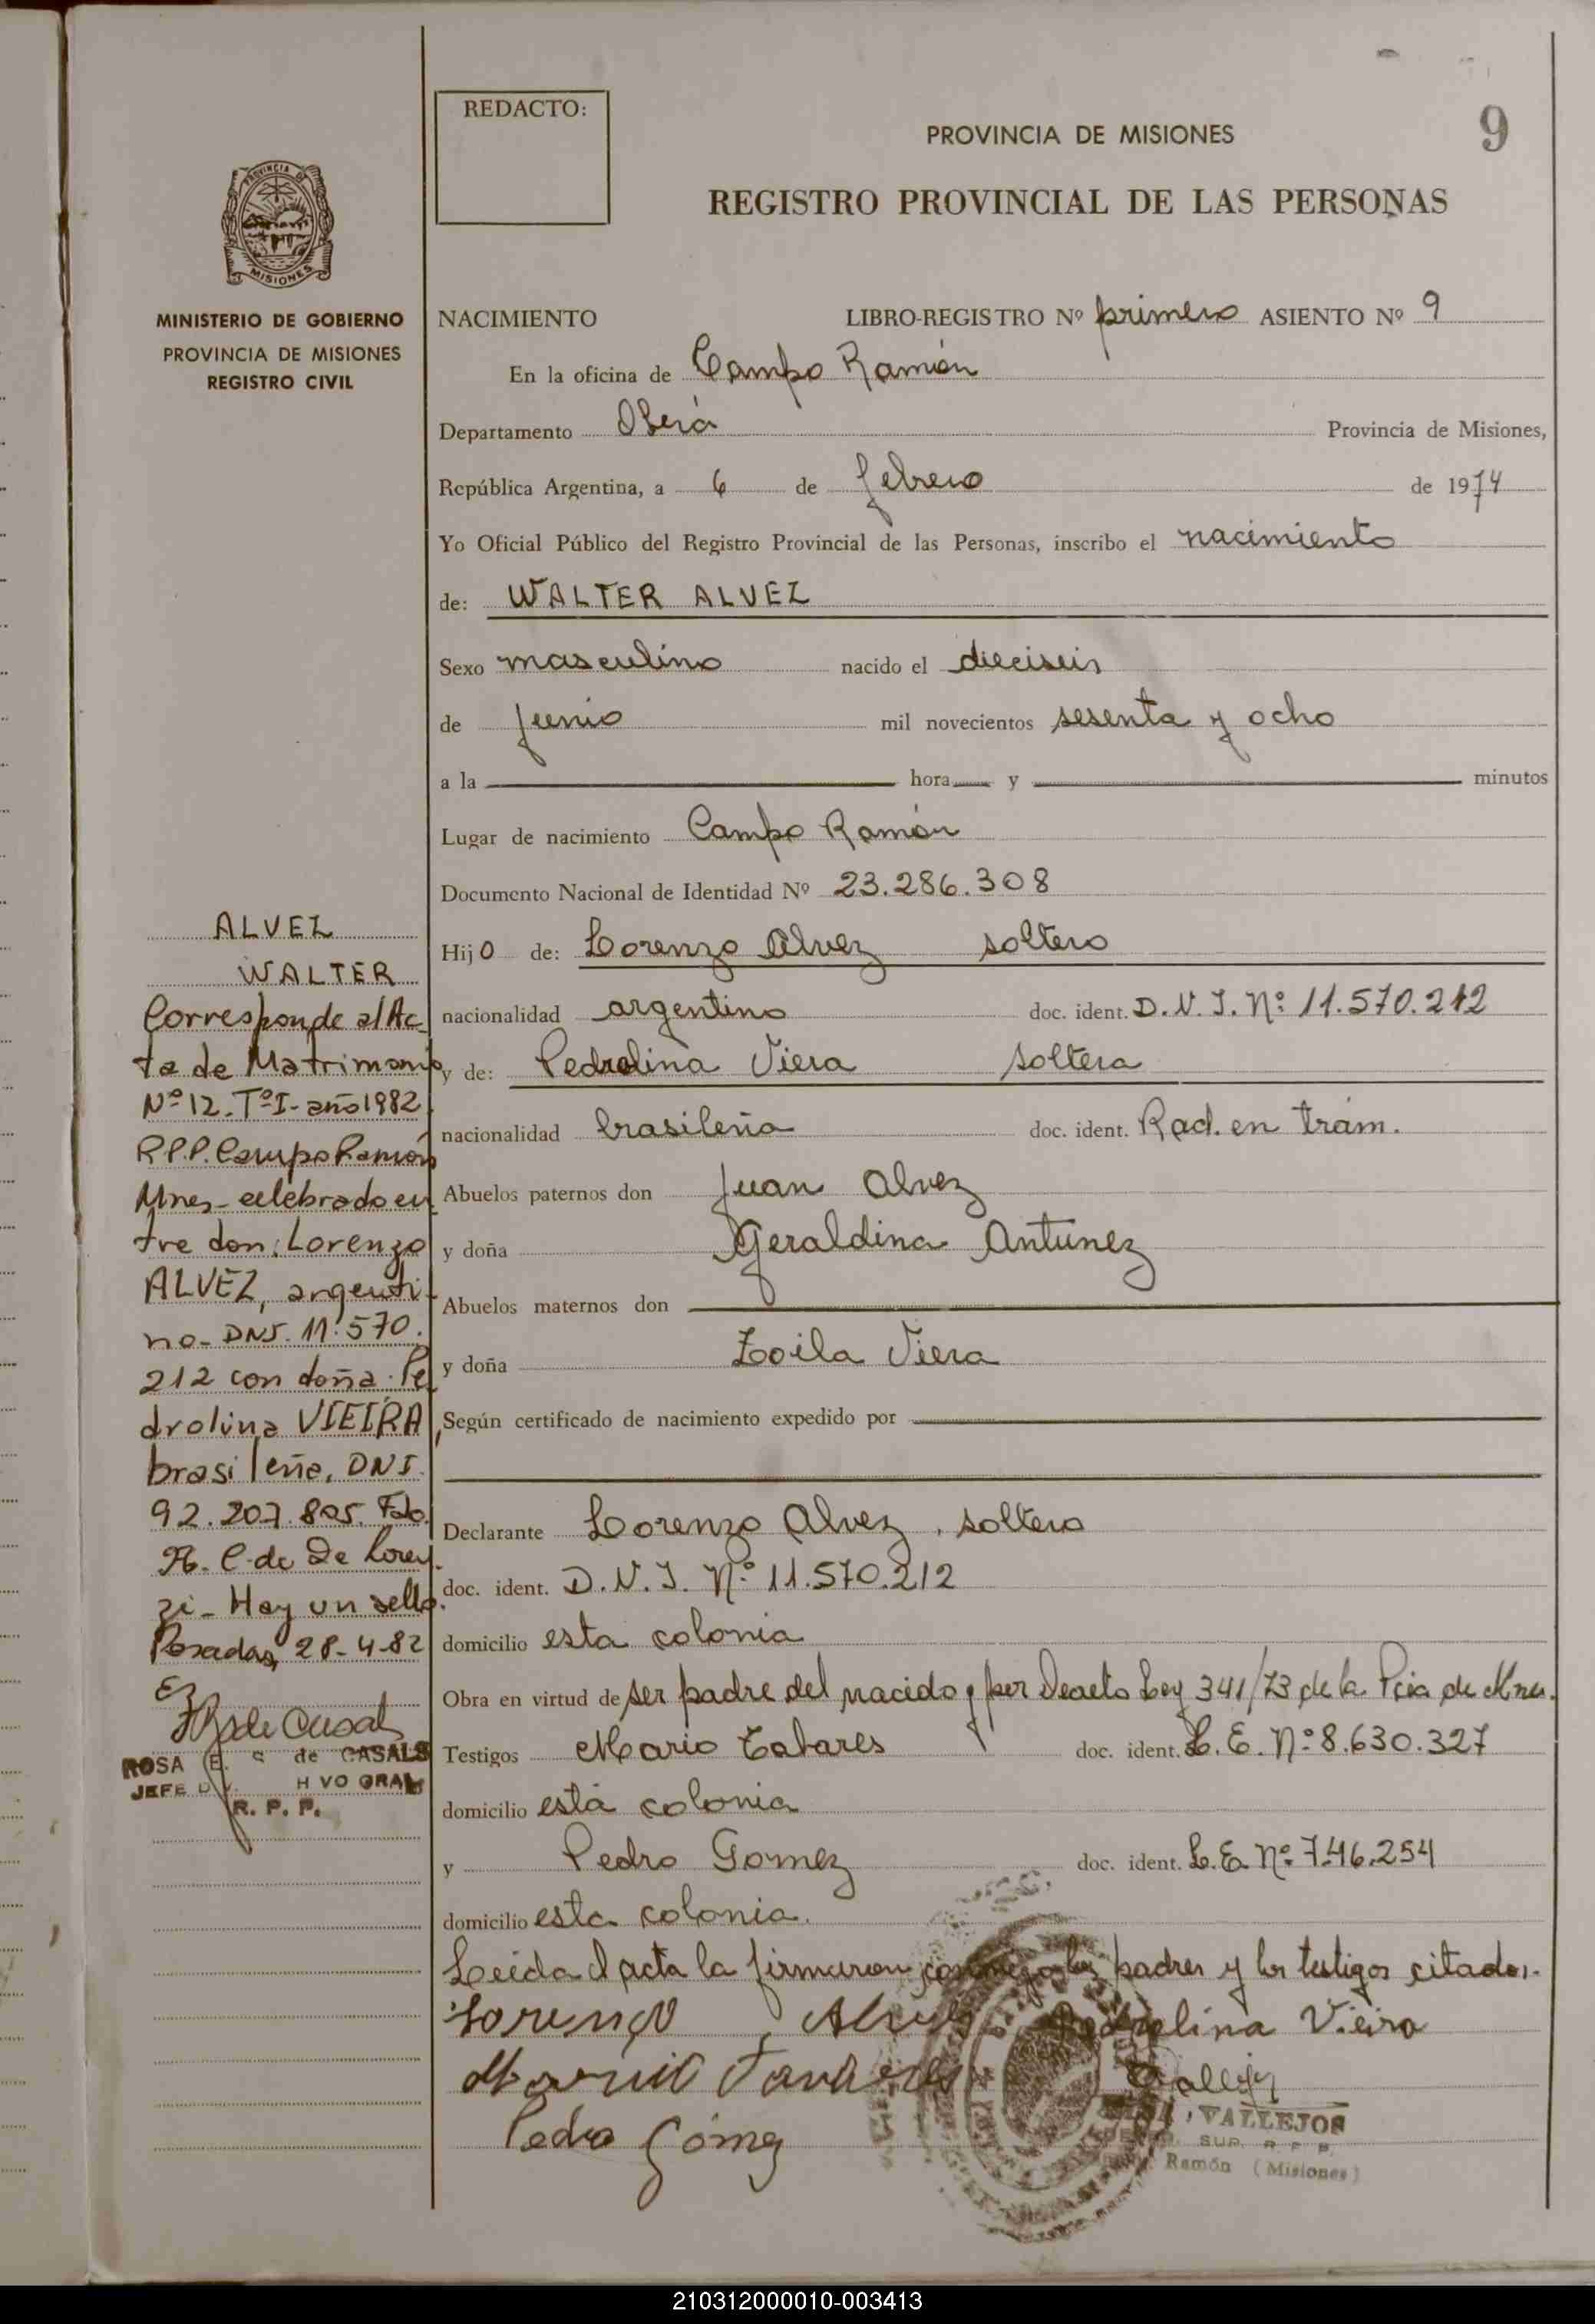 REDACTO:
PROVINCIA DE MISIONES
9
REGISTRO PROVINCIAL DE LAS PERSONAS
PROVINCIA DE
MISIONES
MINISTERIO DE GOBIERNO
PROVINCIA DE MISIONES
REGISTRO CIVIL
NACIMIENTO LIBRO-REGISTRO Nº primero ASIENTO Nº 9
En la oficina de Campo Ramón
Departamento Oberá Provincia de Misiones,
República Argentina, a 6 de febrero de 1974
Yo Oficial Público del Registro Provincial de las Personas, inscribo el nacimiento
de: WALTER ALVEZ
Sexo masculino nacido el dieciseis
de junio mil novecientos sesenta y ocho
a la hora y minutos
Lugar de nacimiento Campo Ramón
Documento Nacional de Identidad Nº 23.286.308
Hijo de: Lorenzo Alvez soltero
nacionalidad argentino doc. ident. D.N.I. Nº 11.570.212
y de: Pedrolina Viera soltera
nacionalidad brasileña doc. ident. Rad. en trám.
Abuelos paternos don Juan Alvez
y doña Geraldina Antunez
Abuelos maternos don
y doña Zoila Viera
Según certificado de nacimiento expedido por
Declarante Lorenzo Alvez, soltero
doc. ident. D.N.I. Nº 11.570.212
domicilio esta colonia
Obra en virtud de ser padre del nacido y por Decreto Ley 341/73 de la Pcia de Mnes.
Testigos Mario Tabares doc. ident. L.E. Nº 8.630.327
domicilio esta colonia
y Pedro Gomez doc. ident. L.E. Nº 7.46.254
domicilio esta colonia.
Leida el acta la firmaron conmigo los padres y los testigos citados.-
Lorenzo Alvez Pedrolina Vieira
Mario Tavares
Pedro Gómez
VALLEJOS
SUP. R P P
Ramón (Misiones)
ALVEZ
WALTER
Corresponde al Ac
ta de Matrimonio
Nº 12. Tº I- año 1982
R.P.P. Campo Ramón
Mnes- celebrado en
tre don: Lorenzo
ALVEZ, argenti
no- DNI. 11.570.
212 con doña: Pe
drolina VIEIRA,
brasileña, DNI.
92.207.805. Fdo.
C. de De Loren
zi- Hay un sello.
Posadas, 28-4-82
ROSA E. de CASALS
JEFE
R. P. P.
210312000010-003413